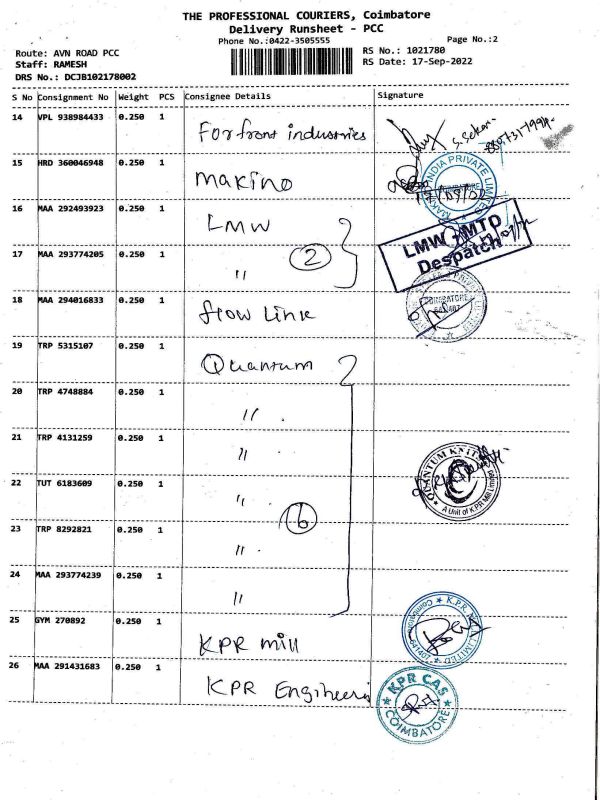 THE PROFESSIONAL COURIERS, Coimbatore
Delivery Runsheet - PCC
Phone No.:0422-3505555
Page No.:2
Route: AVN ROAD PCC
RS No.: 1021780
Staff: RAMESH
RS Date: 17-Sep-2022
DRS No.: DCJB102178002
S No Consignment No Weight PCS Consignee Details Signature
14 VPL 938984433 0.250 1 Forfront industries S. Sekar
15 HRD 360046948 0.250 1 Makino
INDIA PRIVATE LIMITED
16 MAA 292493923 0.250 1 LMW
LMW - MTD
Despatch
17 MAA 293774205 0.250 1 " 2
18 MAA 294016833 0.250 1 flow Link
COIMBATORE
641407
19 TRP 5315107 0.250 1 Quantum
20 TRP 4748884 0.250 1 "
21 TRP 4131259 0.250 1 "
QUANTUM KNITS
A Unit of K P R Mill Limited
22 TUT 6183609 0.250 1 " 16
23 TRP 8292821 0.250 1 "
24 MAA 293774239 0.250 1 "
25 GYM 270892 0.250 1 KPR mill
K.P.R. MILL LIMITED
Coimbatore
641407
26 MAA 291431683 0.250 1 KPR Engineeri
KPR CAS
COIMBATORE